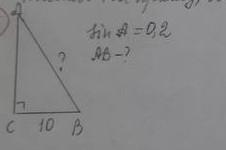 A
sin A = 0,2
AB - ?
?
C 10 B